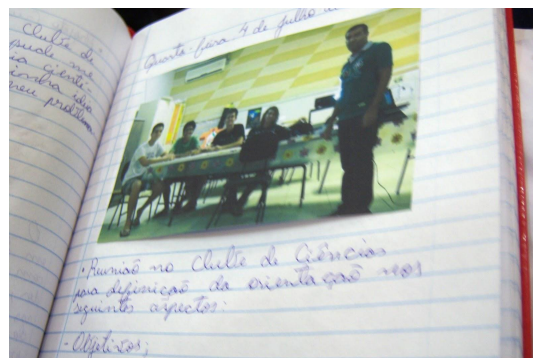 Clube de
pude me
ideia
Quarta-feira 4 de julho
• Reunião no Clube de Ciências
para definição da orientação nos
seguintes aspectos:
- Objetivos;